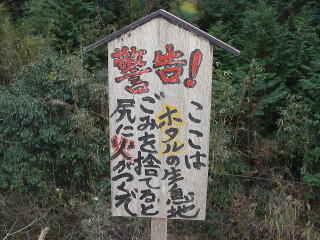 警告!
ここは
ホタルの生息地
ごみを捨てると
尻に火がつくぞ